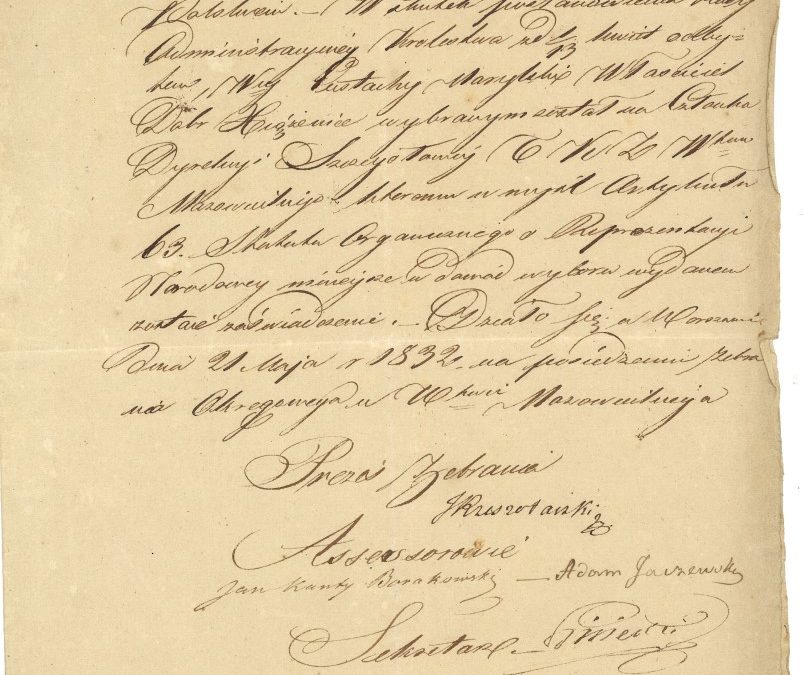 W skutek postanowienia Rady
Administracyjnéy Królestwa
tem, Wny Eustachy Marylski Właściciel
Dóbr Xiążenice wybranym został na Członka
Dyrekcyi Szczegółowéy T K Z Wtwa
Mazowieckiego któremu w myśl Artykułu
63. Statutu Organicznego o Reprezentacyi
Narodowey ninieysze w dowód wyboru wydanem
zostaie zaświadczenie. – Działo się w Warszawie
Dnia 21 Maja r 1832. na posiedzeniu Zebra
nia Okręgowego w Wtwie Mazowieckiego
Prezes Zebrania
Assessorowie
Jan Kanty Borakowski – Adam Jaczewski
Sekretarz –